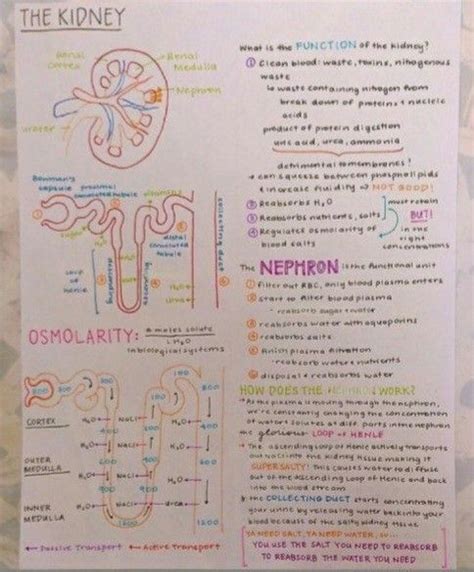 THE KIDNEY
Renal
Cortex
Renal
Medulla
Nephron
ureter
What is the FUNCTION of the kidney?
① Clean blood: waste, toxins, nitrogenous
waste
↳ waste containing nitrogen from
break down of proteins & nucleic
acids
product of protein digestion
uric acid, urea, ammonia
detrimental to membranes!
→ can squeeze between phospholipids
& increase fluidity → NOT GOOD!
② Reabsorbs H₂O
③ Reabsorbs nutrients, salts
④ Regulates osmolarity of
blood salts
must retain
BUT!
in the
right
concentrations
Bowman's
capsule
proximal
convoluted tubule
distal
convoluted
tubule
collecting duct
loop of
henle
descending
ascending
The NEPHRON is the functional unit
① filter out RBC, only blood plasma enters
② start to filter blood plasma
- reabsorb sugar + water
③ reabsorbs water with aquaporins
④ reabsorbs salts
⑤ Finish plasma filtration
- reabsorb water + nutrients
⑥ disposal + reabsorbs water
OSMOLARITY: # moles solute
1 L H₂O
in biological systems
HOW DOES THE NEPHRON WORK?
→ As the plasma is moving through the nephron,
we're constantly changing the concentration
of water & solutes at diff. parts in the nephron
glorious LOOP of HENLE
→ The ascending loop of Henle actively transports
out NaCl into the kidney tissue making it
SUPER SALTY! This causes water to diffuse
out of the descending loop of Henle and back
into the blood stream
the COLLECTING DUCT starts concentrating
your urine by releasing water back into your
blood because of the salty kidney tissue
YA NEED SALT, YA NEED WATER, so...
YOU USE THE SALT YOU NEED TO REABSORB
TO REABSORB THE WATER YOU NEED
300
300
100
300
CORTEX
400
H₂O
NaCl
400
OUTER
MEDULLA
H₂O
NaCl
INNER
MEDULLA
H₂O
NaCl
urea
1200
1200
← Passive Transport
← Active Transport